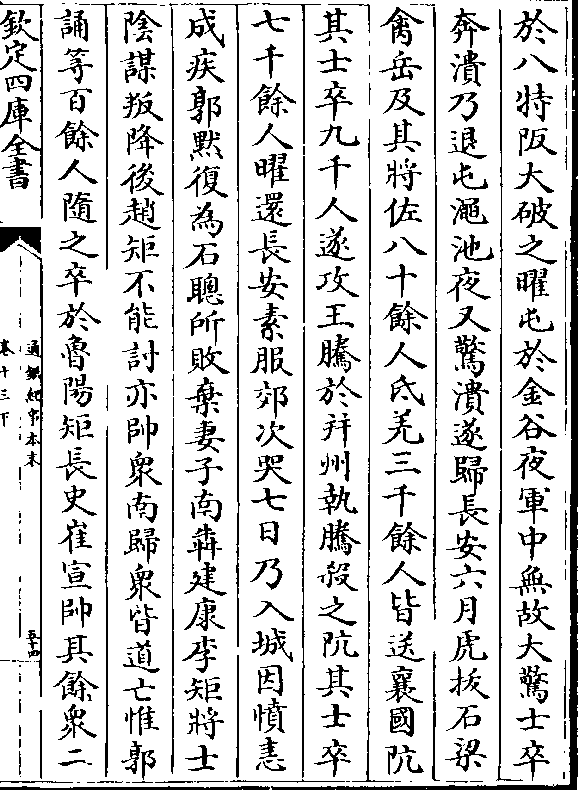 於八特阪大破之曜屯於金谷夜軍中無故大驚士卒
奔潰乃退屯澠池夜又驚潰遂歸長安六月虎拔石梁
禽岳及其將佐八十餘人氐羌三千餘人皆送襄國阬
其士卒九千人遂攻王騰於并州執騰殺之阬其士卒
七千餘人曜還長安素服郊次哭七日乃入城因憤恚
成疾郭默復為石聰所敗棄妻子南犇建康李矩將士
陰謀叛降後趙矩不能討亦帥衆南歸衆皆道亡惟郭
誦等百餘人隨之卒於魯陽矩長史崔宣帥其餘衆二
欽定四庫全書
通鑑紀事本末
卷十三下
五十四